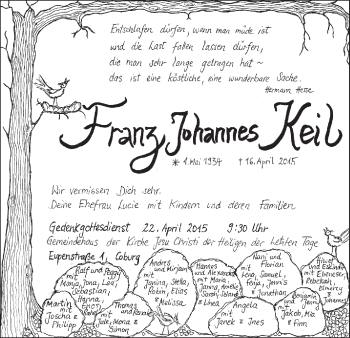 Entschlafen dürfen, wenn man müde ist
und die Last fallen lassen dürfen,
die man sehr lange getragen hat ~
das ist eine köstliche, eine wunderbare Sache.
Hermann Hesse
Franz Johannes Keil
* 1. Mai 1934 † 16. April 2015
Wir vermissen Dich sehr.
Deine Ehefrau Lucie mit Kindern und deren Familien.
Gedenkgottesdienst 22. April 2015 9:30 Uhr
Gemeindehaus der Kirche Jesu Christi der Heiligen der Letzten Tage
Eupenstraße 1, Coburg
Ralf und Peggy
mit
Manja, Jona, Lea,
Sebastian,
Hanna,
Martin
mit
Joscha &
Philipp
Thomas und
mit
Jule, Mona &
Simon
André
und Mirjam
mit
Janina, Stella,
Robin, Elias
& Melissa
Hannes
und Alexandra
mit Marie,
& Linea
Angela
mit
Janek & Ines
Nani und
Florian
mit
Lena, Samuel,
Fenja, Jannis
& Jonathan
mit
Jakob, Mia
& Finn
und
mit
Rebekkah,